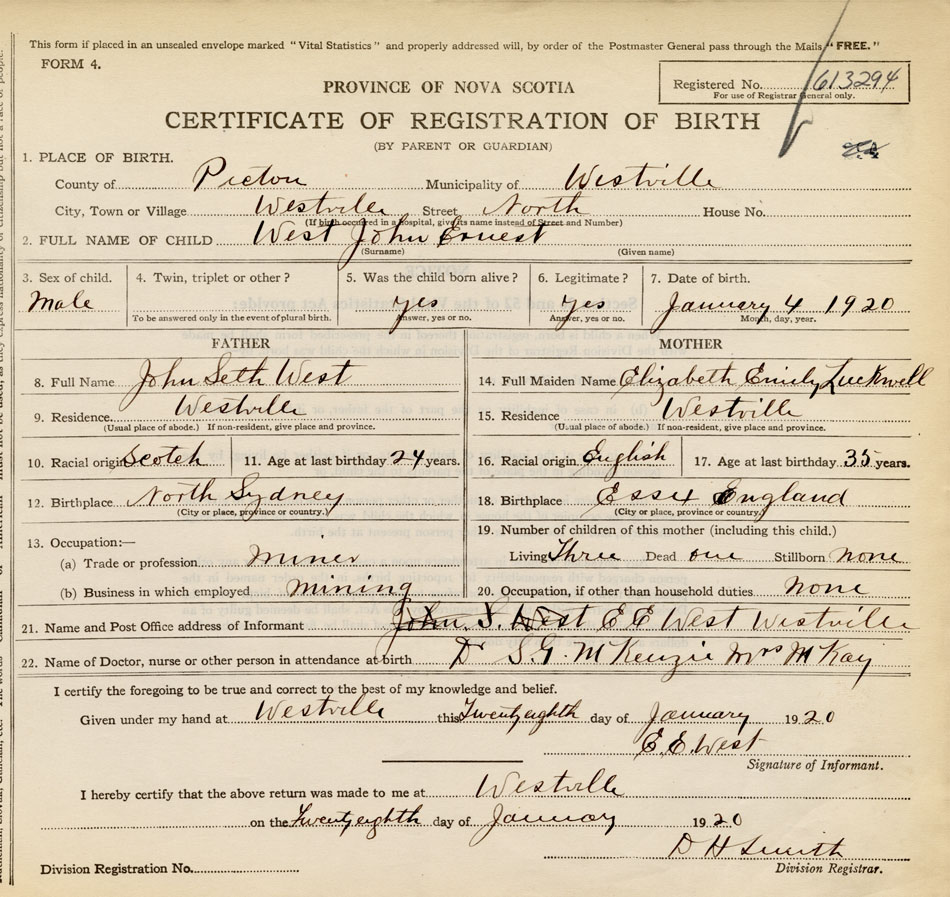 This form if placed in an unsealed envelope marked "Vital Statistics" and properly addressed will, by order of the Postmaster General pass through the Mails "FREE."
FORM 4.
Registered No. 613294
For use of Registrar General only.
PROVINCE OF NOVA SCOTIA
CERTIFICATE OF REGISTRATION OF BIRTH
(BY PARENT OR GUARDIAN)
1. PLACE OF BIRTH.
County of Pictou Municipality of Westville
City, Town or Village Westville Street North House No.
(If birth occurred in a hospital, give its name instead of Street and Number)
2. FULL NAME OF CHILD West John Ernest
(Surname) (Given name)
3. Sex of child. 4. Twin, triplet or other? 5. Was the child born alive? 6. Legitimate? 7. Date of birth.
Male yes yes January 4 1920
To be answered only in the event of plural birth. Answer, yes or no. Answer, yes or no. Month, day, year.
FATHER MOTHER
8. Full Name John Seth West 14. Full Maiden Name Elizabeth Emily Luckwell
9. Residence. Westville 15. Residence Westville
(Usual place of abode.) If non-resident, give place and province. (Usual place of abode.) If non-resident, give place and province.
10. Racial origin Scotch 11. Age at last birthday 24 years. 16. Racial origin English 17. Age at last birthday 35 years.
12. Birthplace North Sydney 18. Birthplace Essex England
(City or place, province or country.) (City or place, province or country.)
13. Occupation:— 19. Number of children of this mother (including this child.)
(a) Trade or profession miner Living Three Dead one Stillborn none
(b) Business in which employed mining 20. Occupation, if other than household duties None
21. Name and Post Office address of Informant John S. West E E West Westville
22. Name of Doctor, nurse or other person in attendance at birth Dr S.G. McKenzie Mrs McKay
I certify the foregoing to be true and correct to the best of my knowledge and belief.
Given under my hand at Westville this Twenty eighth day of January 1920
E. E. West
Signature of Informant.
I hereby certify that the above return was made to me at Westville
on the Twenty eighth day of January 1920
D H Smith
Division Registration No. Division Registrar.